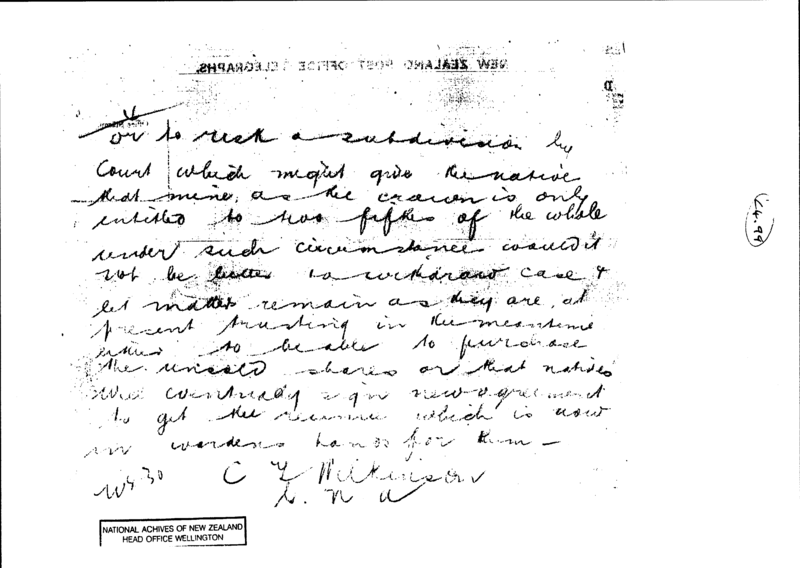 NEW ZEALAND POST OFFICE TELEGRAPHS.
D
or to risk a subdivision by
Court which might give the native
that mine, as the crown is only
entitled to two fifths of the whole
under such circumstance would it
not be better to withdraw case &
let matters remain as they are, at
present trusting in the meantime
either to be able to purchase
the unsold shares or that natives
will eventually sign new agreement
to get the revenue which is now
in wardens hands for them —
C F Wilkinson
L. N A
NATIONAL ACHIVES OF NEW ZEALAND
HEAD OFFICE WELLINGTON